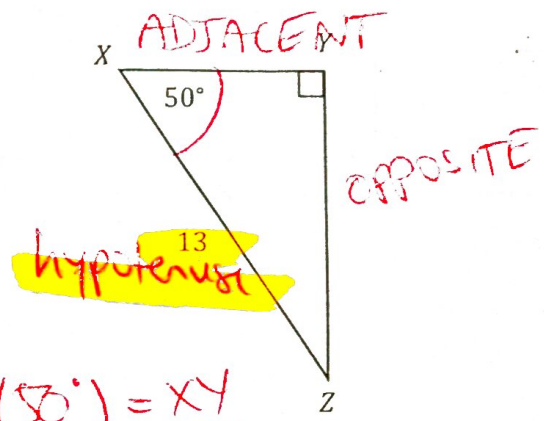 ADJACENT
X Y
50°
OPPOSITE
13
hypotenuse
(50°) = XY
Z